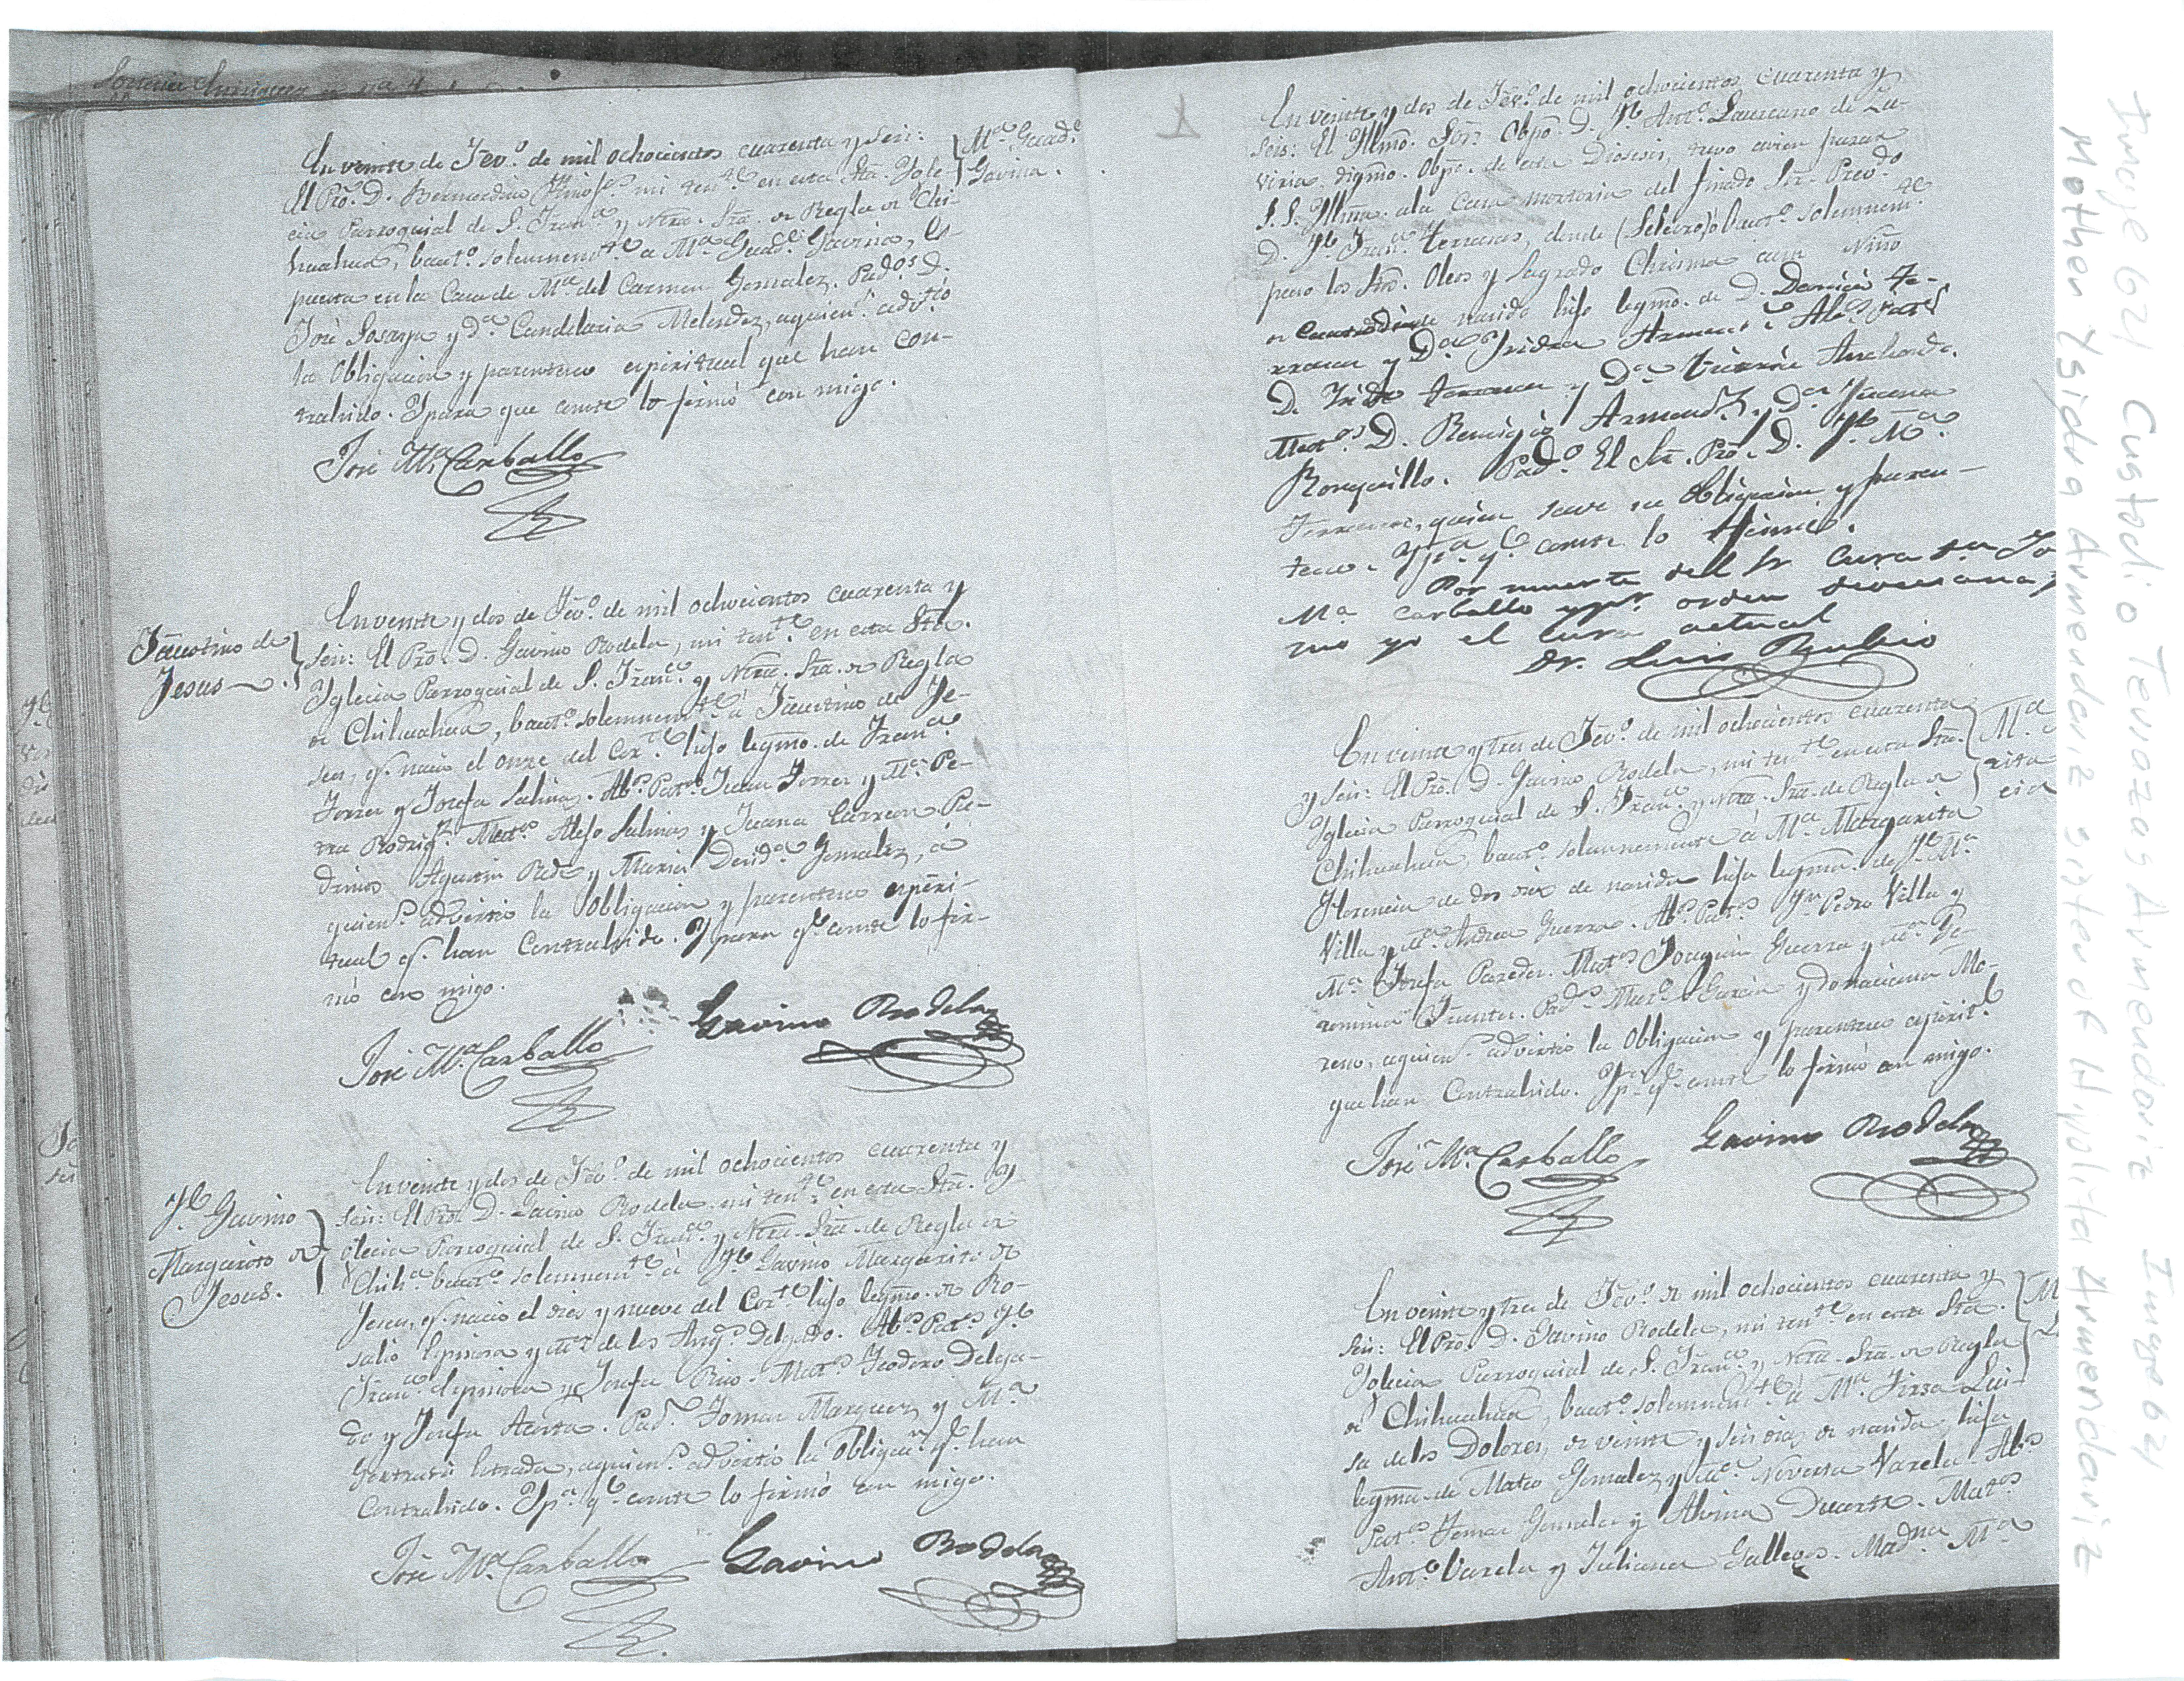 En veinte de Fevº. de mil ochocientos cuarenta y seis:
El Pro. D. Bernardino mi tente en esta Sta. Ygle-
cia Parroquial de S. Franco y Ntra. Sra. de Regla de Chi-
huahua, bautº. solemnemte a Mª Guade Gavina, es-
puesta en la Casa de Mª del Carmen Gonzalez. Pados D.
José y Dª Candelaria Melendez, a quiens advirtio
la Obligacion y parentesco espiritual que han con-
trahido. Y para que conste lo firmó con migo.
Mª Guade
Gavina.
José Mª Carballo
Faustino de
Jesus
En veinte y dos de Fevº. de mil ochocientos cuarenta y
seis: El Pro. D. Gavino Rodela, mi tente en esta Sta.
Yglecia Parroquial de S. Franco y Ntra. Sra. de Regla
de Chihuahua, bautº. solemnemte á Faustino de Je-
sus, q. nació el once del Corte hijo legmo. de Franco
Torres y Josefa Salinas. Abs Pats Juan Torres y Mª Pe-
tra Rodrigz. Mats Alejo Salinas y Juana Carreon Pa-
drinos Agustin y Maria Gonzalez, á
quiens advirtio la obligacion y parentesco espiri-
tual q. han Contrahido. Y para qe conste lo fir-
mó con migo.
José Mª Carballo Gavino Rodela
Je Gavino
Margarito de
Jesus.
En veinte y dos de Fevº. de mil ochocientos cuarenta y
seis: El Pro. D. Gavino Rodela mi tente en esta Sta. Y-
glecia Parroquial de S. Franco y Ntra. Sra. de Regla de
Chihª bautº. solemnemte á Je Gavino Margarito de
Jesus, q. nació el dies y nueve del Corte hijo legmo. de Ro-
salio Espinosa y Mª de los Angs Delgado. Abs Pats Je
Franco Espinosa y Josefa Rios. Mats Teodoro Delga-
do y Josefa Acosta. Pads Tomas Marquez y Mª
Gertrudis Estrada, a quiens advirtio la Obligan q. han
Contrahido. Y pª qe conste lo firmó con migo.
José Mª Carballo Gavino Rodela
En veinte y dos de Fevº. de mil ochocientos cuarenta y
seis: El Yllmo. Sor. Obpo. D. Je Antº. Laureano de Zu-
viria, digmo. Obpo. de esta Diosesis, tuvo a vien pasar
S. S. Yllma. a la Casa mortoria del finado Sor. Preo.
D. Je Franco Terrazas, donde (Selebro) ó Bautº. solemnemte
puso los Stos. Oleos y Sagrado Chrisma a un Niño
de nacido hijo legmo. de D. Te-
rrazas y Dª Ysidra Abs Pats
D. Terrazas y Dª Anchondo.
Matos D. Remigio Armendz y Dª
Ronquillo. Pado El Sr. Pro. D. Je Mª
Terrazas, quien save su obligacion y paren-
tesco. Y pª qe conste lo firmé.
Por muerte del Sr Cura
Mª Carballo y por orden
mo yo el Cura actual
Dr. Luis Rubio
En veinte y tres de Fevº. de mil ochocientos cuarenta
y seis: El Pro. D. Gavino Rodela, mi tente en esta Sta.
Yglecia Parroquial de S. Franco y Ntra. Sra. de Regla de
Chihuahua, bautº. solemnemente á Mª Margarita
Florencia de dos dias de nacida hija legma. de Je Mª
Villa y Mª Andrea Guerra. Abs Pats Pedro Villa y
Mª Josefa Paredes. Mats Joaquin Guerra y Mª Ge-
ronima Fuentes. Pads Garcia y Donaciana Mo-
reno, a quiens advirtio la Obligacion y parentesco espirit.
que han Contrahido. Y pª qe conste lo firmó con migo.
José Mª Carballo Gavino Rodela
En veinte y tres de Fevº. de mil ochocientos cuarenta y
seis: El Pro. D. Gavino Rodela, mi tente en esta Sta.
Yglecia Parroquial de S. Franco y Ntra. Sra. de Regla
de Chihuahua, bautº. solemnemte á Mª Tirsa Lui-
sa de los Dolores, de veinte y seis dias de nacida, hija
legma. de Mateo Gonzalez y Mª Varela. Abs
Pats Tomas Gonzalez y Albina Mats
Antº. Varela y Juliana Gallegos. Madna Mª
Image 621 Custodio Terrozas Armendariz Image 621
Mother Ysidra Armendariz sister of Hypolita Armendariz